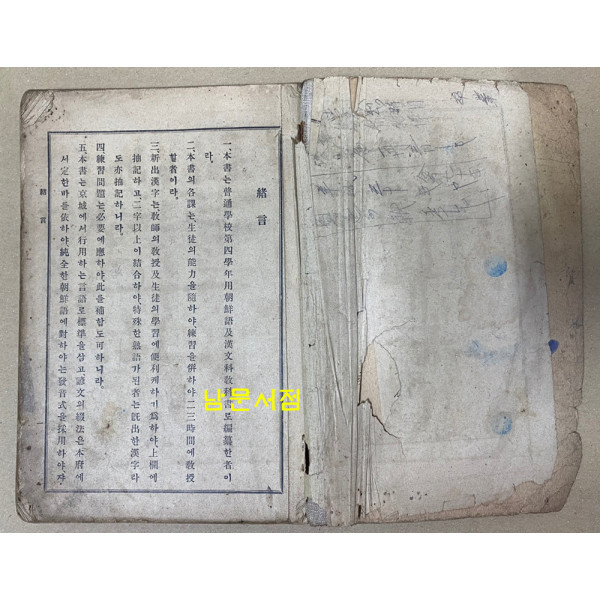 緒言
一、本書는普通學校第四學年用朝鮮語及漢文科敎科書로編纂한者이
라.
二、本書의各課는生徒의能力을隨하야練習을倂하야二三時間에敎授
할者이라.
三、新出漢字는敎師의敎授及生徒의學習에便利케하기爲하야、上欄에
抽記하고二字以上이結合하야、特殊한熟語가된者는旣出한漢字라
도亦抽記하니라.
四、練習問題는必要에應하야、此를補합도可하니라.
五、本書는京城에서行用하는言語로標準을삼고諺文의綴法은本府에
서定한바를依하야、純全한朝鮮語에對하야는發音式을採用하야쟈
緒言
一
남문서점